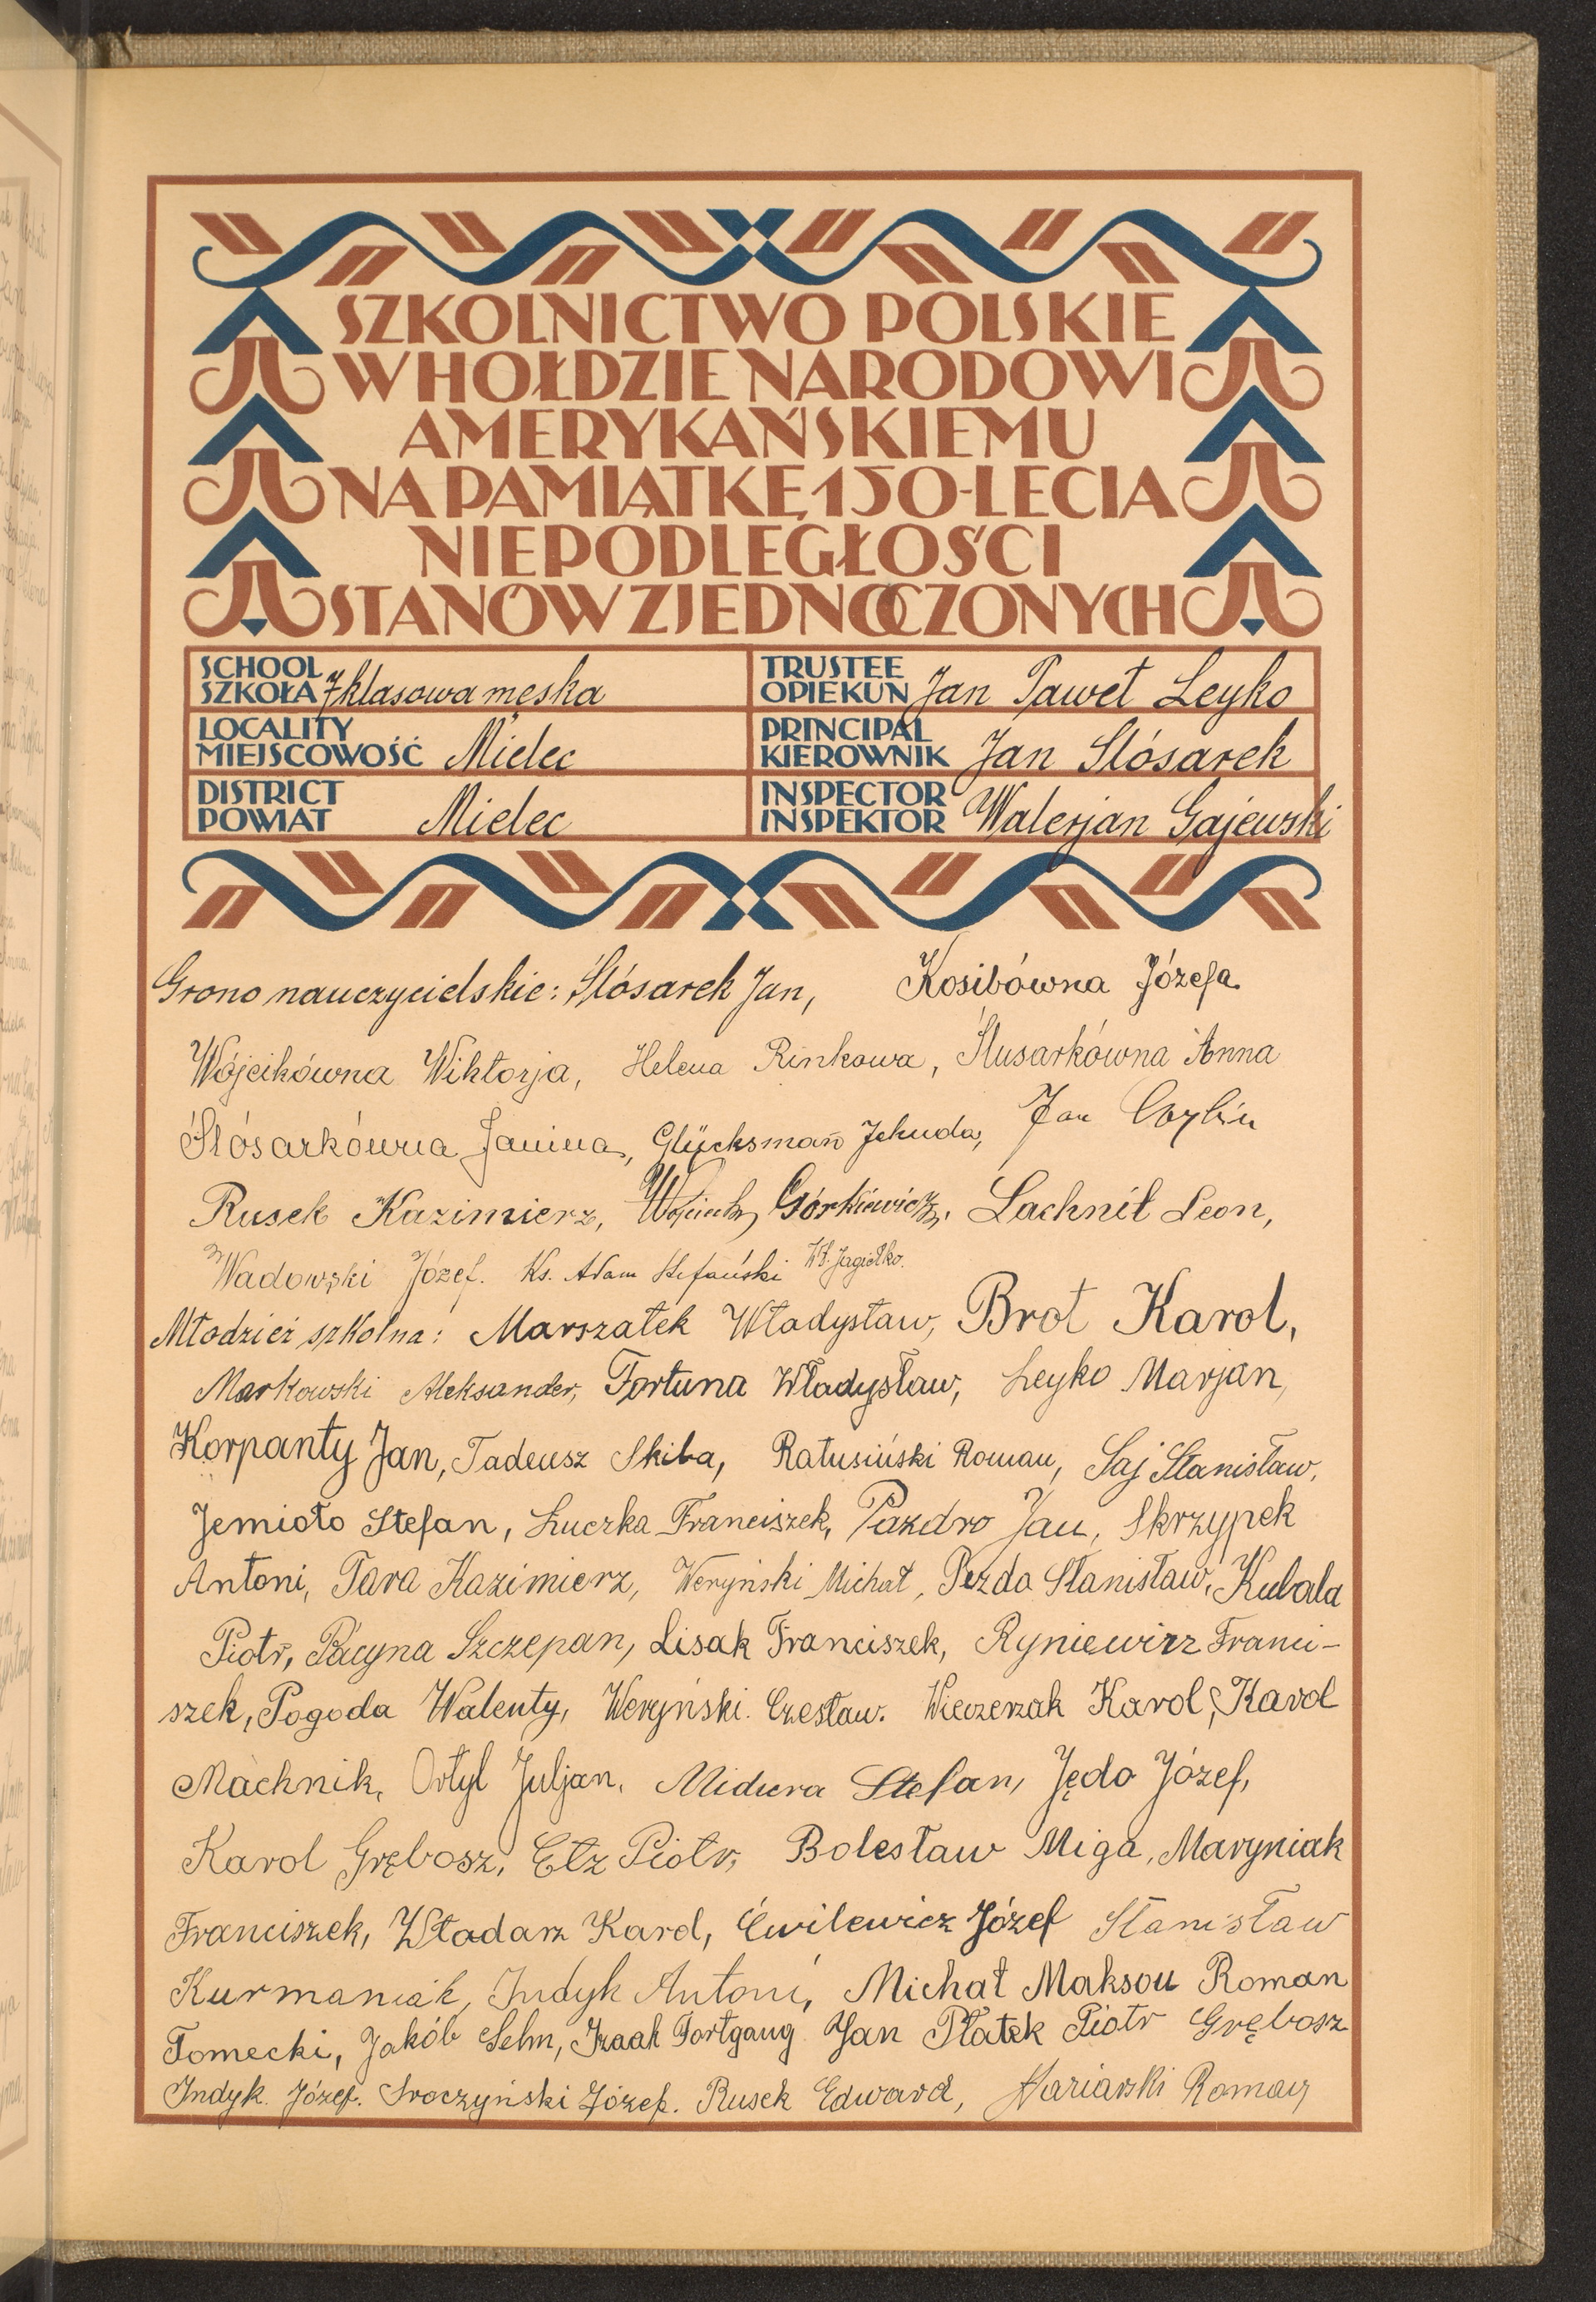 SZKOLNICTWO POLSKIE
W HOŁDZIE NARODOWI
AMERYKAŃSKIEMU
NA PAMIĄTKĘ 150-LECIA
NIEPODLEGŁOŚCI
STANÓW ZJEDNOCZONYCH
SCHOOL
SZKOŁA 7 klasowa męska
TRUSTEE
OPIEKUN Jan Paweł Leyko
LOCALITY
MIEJSCOWOŚĆ Mielec
PRINCIPAL
KIEROWNIK Jan Ślósarek
DISTRICT
POWIAT Mielec
INSPECTOR
INSPEKTOR Walerjan Gajewski
Grono nauczycielskie: Ślósarek Jan, Kosibówna Józefa
Wójcikówna Wiktorja, Helena Rinkowa, Ślusarkówna Anna
Ślósarkówna Janina, Glücksman Jehuda, Jan
Rusek Kazimierz, Wojciech Górkiewicz, Lachnit Leon,
Wadowski Józef. Ks. Adam Stefański Wł. Jagiełko.
Młodzież szkolna: Marszałek Władysław, Brot Karol,
Markowski Aleksander, Fortuna Władysław, Leyko Marjan,
Korpanty Jan, Tadeusz Skiba, Ratusiński Roman, Saj Stanisław,
Jemioło Stefan, Łuczka Franciszek, Pazdro Jan, Skrzypek
Antoni, Tara Kazimierz, Weryński Michał, Pezda Stanisław, Kubala
Piotr, Pacyna Szczepan, Lisak Franciszek, Ryniewicz Franci-
szek, Pogoda Walenty, Weryński Czesław. Wieczerzak Karol, Karol
Machnik, Ortyl Juljan, Midura Stefan, Jędo Józef,
Karol Grębosz, Etz Piotr, Bolesław Miga, Maryniak
Franciszek, Władarz Karol, Ćwilewicz Józef Stanisław
Kurmaniak, Indyk Antoni, Michał Maksou Roman
Tomecki, Jakób Selm, Izaak Fortgang Jan Płatek Piotr Grębosz
Indyk Józef. Sroczyński Józef. Rusek Edward, Roman